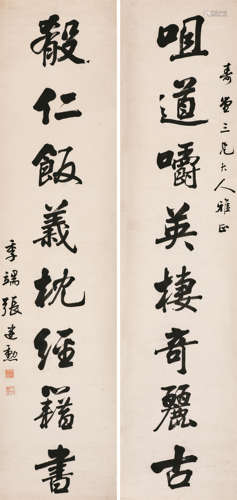 壽堂三兄大人雅正
咀道嚼英棲奇麗古
殽仁飯義枕經籍書
季端張建勳